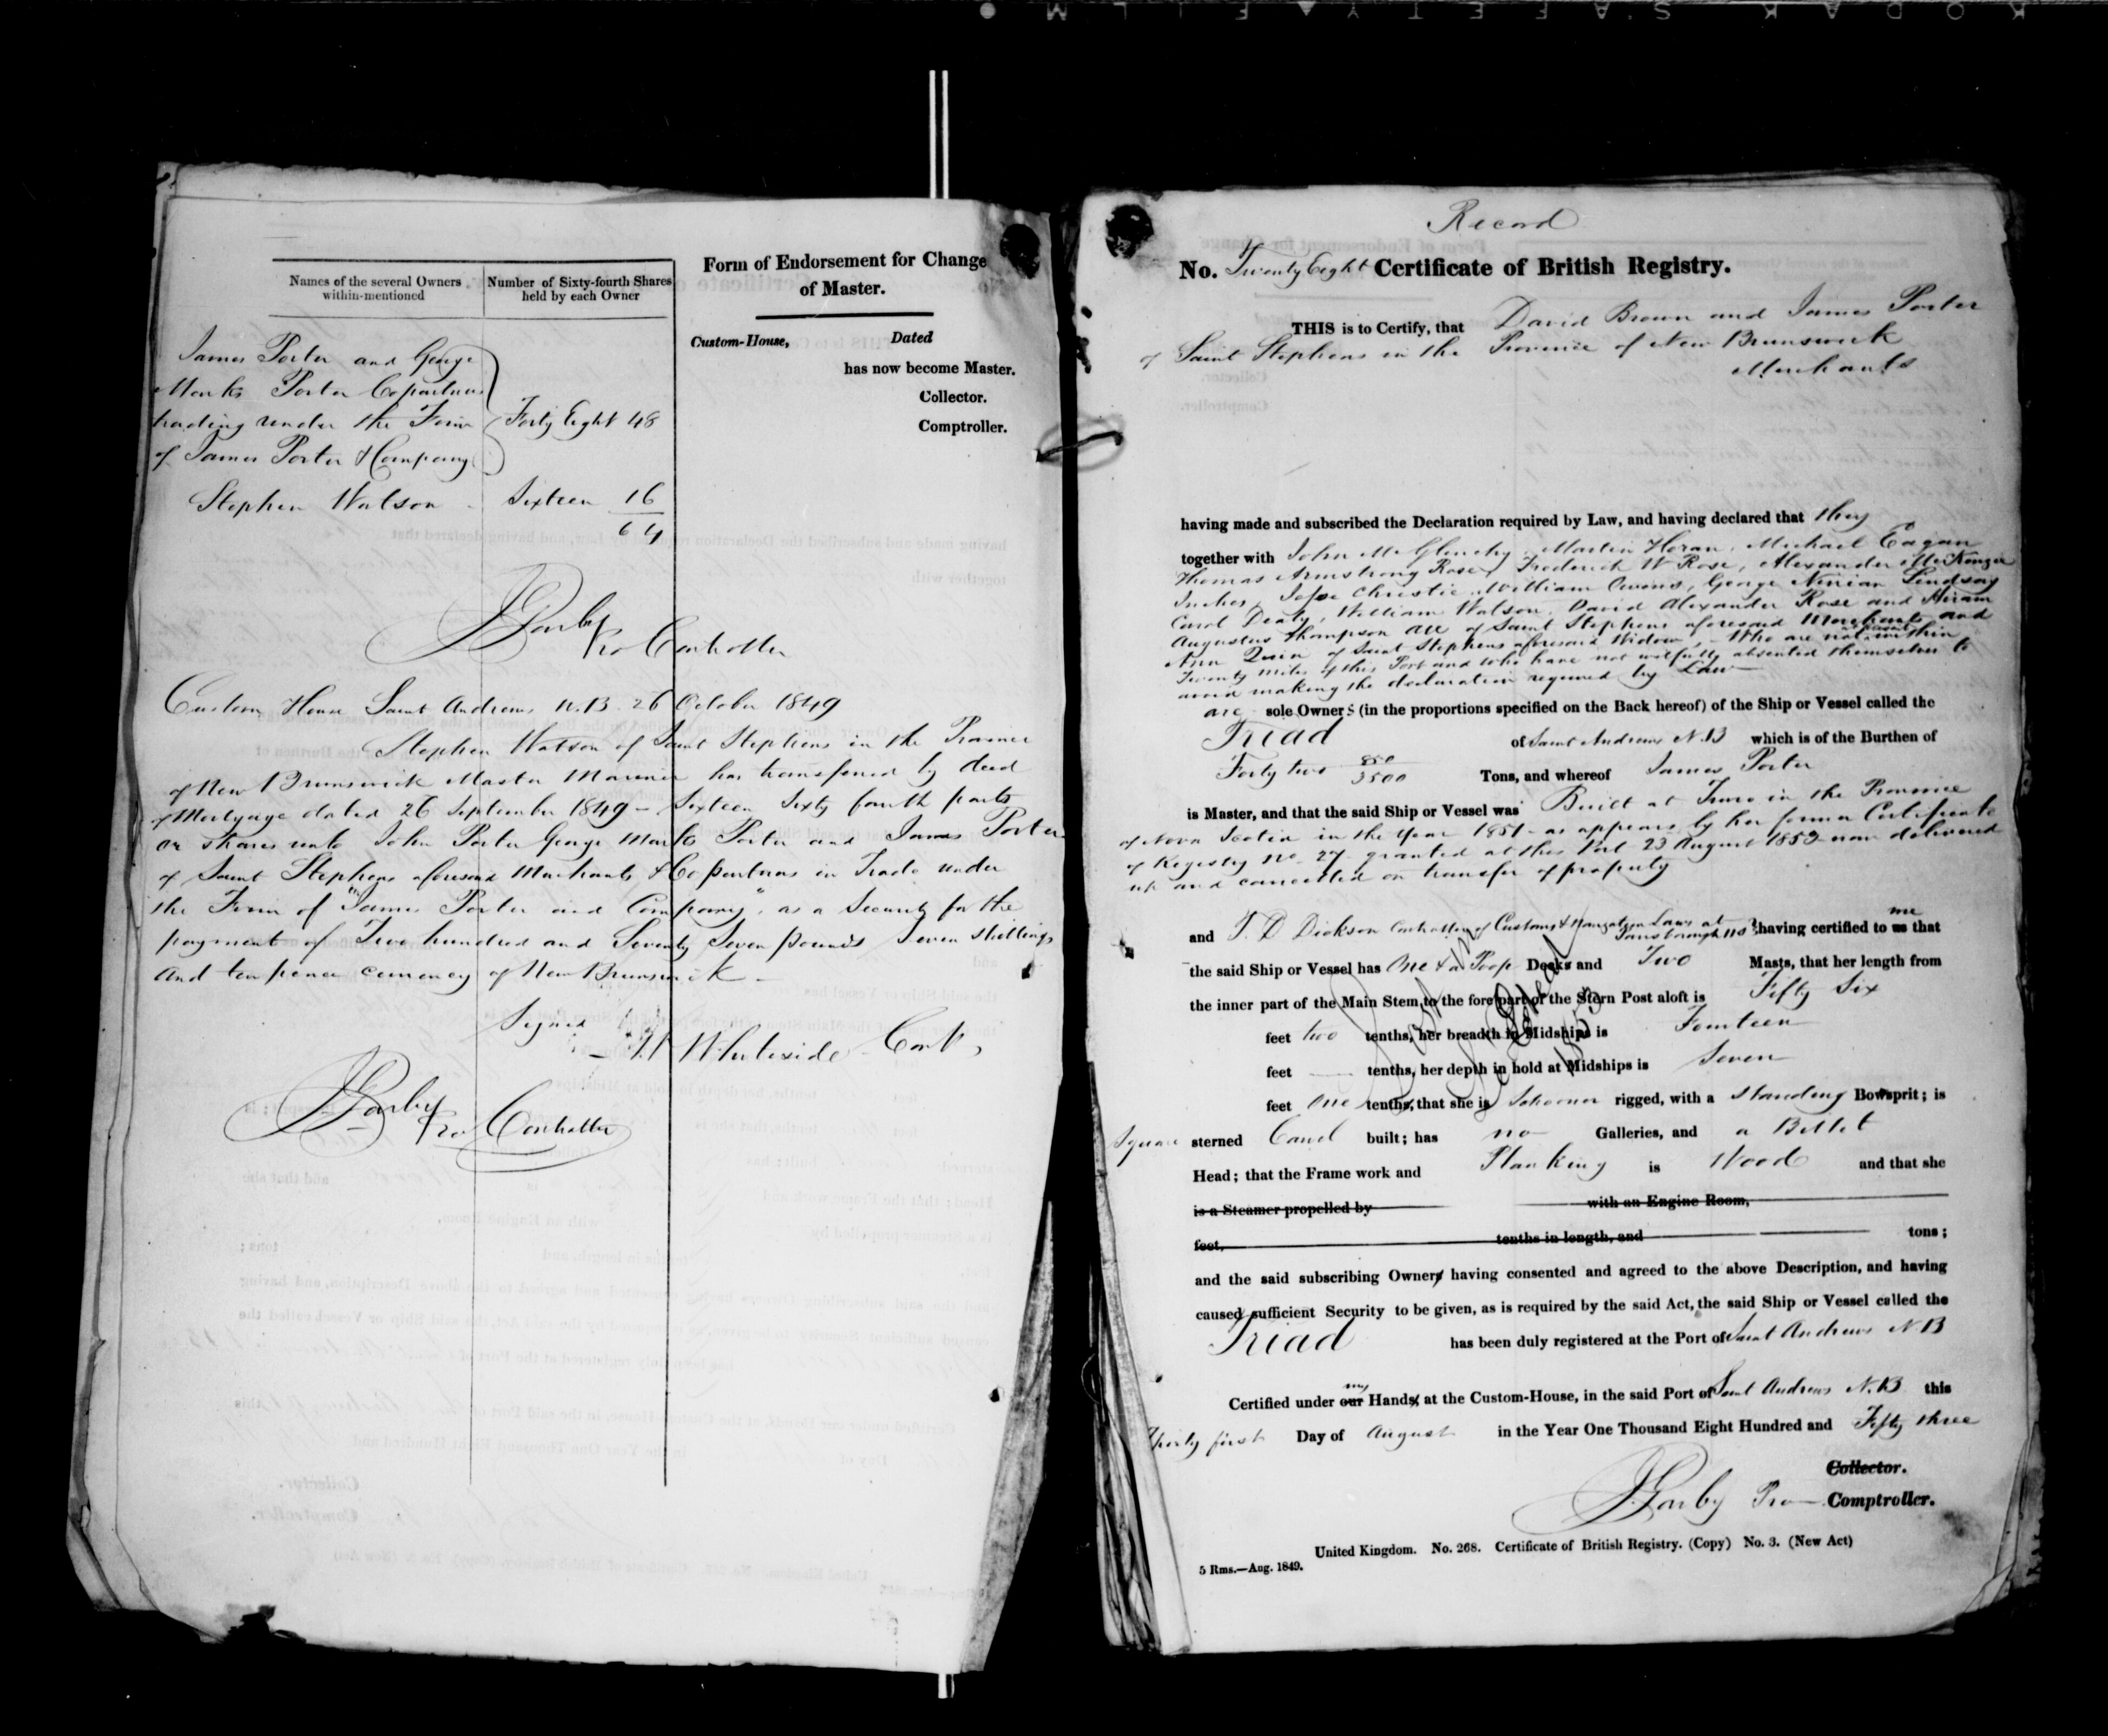 KODAK SAFETY FILM
Names of the several Owners within-mentioned
Number of Sixty-fourth Shares held by each Owner
James Porter and George
Marks Porter Copartners
trading under the Firm
of James Porter & Company
Forty Eight 48
Stephen Watson - Sixteen 16
64
Pro Controller
Form of Endorsement for Change
of Master.
Custom-House, Dated
has now become Master.
Collector.
Comptroller.
Custom House Saint Andrews N.B. 26 October 1849
Stephen Watson of Saint Stephens in the Province
of New Brunswick Master Mariner has transferred by deed
of Mortgage dated 26 September 1849 - Sixteen Sixty fourth parts
or shares unto John Porter George Marks Porter and James Porter
of Saint Stephens aforesaid Merchants & Copartners in Trade under
the Firm of "James Porter and Company", as a Security for the
payment of Two hundred and Seventy Seven pounds Seven shillings
and ten pence currency of New Brunswick -
Signed
Whiteside Cont
Pro Controller
Record
No. Twenty Eight Certificate of British Registry.
THIS is to Certify, that David Brown and James Porter
of Saint Stephens in the Province of New Brunswick
Merchants
having made and subscribed the Declaration required by Law, and having declared that they
together with John McGlinchy, Martin Horan, Michael Eagan
Thomas Armstrong Rose, Frederick W Rose, Alexander McKenzie
Inches, Jesse Christie, William Owens, George Ninian Lindsay
Carol Deaty, William Watson, David Alexander Rose and Hiram
Augustus Thompson all of Saint Stephens aforesaid Merchants and
Ann Quin of Saint Stephens aforesaid Widow, - Who are not within
Twenty miles of this Port and who have not wilfully absented themselves to
avoid making the declaration required by Law
are sole Owners (in the proportions specified on the Back hereof) of the Ship or Vessel called the
Triad of Saint Andrews N.B which is of the Burthen of
Forty two 850/3500 Tons, and whereof James Porter
is Master, and that the said Ship or Vessel was Built at Truro in the Province
of Nova Scotia in the Year 1851 - as appears by her former Certificate
of Registry No. 27 granted at this Port 23 August 1853 now delivered
up and cancelled on transfer of property
and T. D Dickson Controller of Customs & Navigation Laws at Parrsborough N S having certified to me that
the said Ship or Vessel has One & a Poop Decks and Two Masts, that her length from
the inner part of the Main Stem to the fore part of the Stern Post aloft is Fifty Six
feet two tenths, her breadth in Midships is Fourteen
feet — tenths, her depth in hold at Midships is Seven
feet one tenths, that she is Schooner rigged, with a Standing Bowsprit; is
Square sterned Carvel built; has no Galleries, and a Billet
Head; that the Frame work and Planking is Wood and that she
is a Steamer propelled by with an Engine Room,
feet, tenths in length, and tons;
and the said subscribing Owners having consented and agreed to the above Description, and having
caused sufficient Security to be given, as is required by the said Act, the said Ship or Vessel called the
Triad has been duly registered at the Port of Saint Andrews N B
Certified under our my Hands at the Custom-House, in the said Port of Saint Andrews N.B. this
Thirty first Day of August in the Year One Thousand Eight Hundred and Fifty three
Collector.
Pro Comptroller.
United Kingdom. No. 268. Certificate of British Registry. (Copy) No. 3. (New Act)
5 Rms.—Aug. 1849.